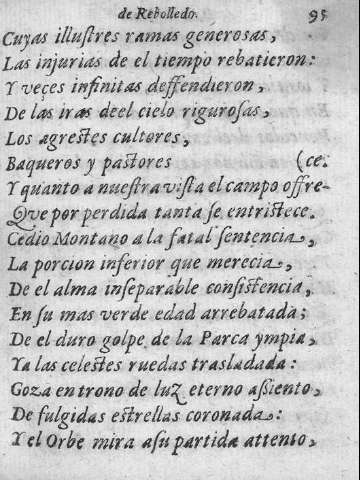 de Rebolledo. 95
Cuyas illuſtres ramas generoſas,
Las injurias de el tiempo rebatieron:
Y veces infinitas deffendieron,
De las iras deel cielo riguroſas,
Los agreſtes cultores,
Baqueros y paſtores (ce.
Y quanto a nueſtra viſta el campo offre-
Que por perdida tanta ſe entriſtece.
Cedio Montano a la fatal ſentencia,
La porcion inferior que merecia,
De el alma inſeparable conſiſtencia,
En ſu mas verde edad arrebatada;
De el duro golpe de la Parca ympia,
Ya las celeſtes ruedas trasladada:
Goza en trono de luz eterno aſſiento,
De fulgidas eſtrellas coronada:
Y el Orbe mira aſu partida attento,